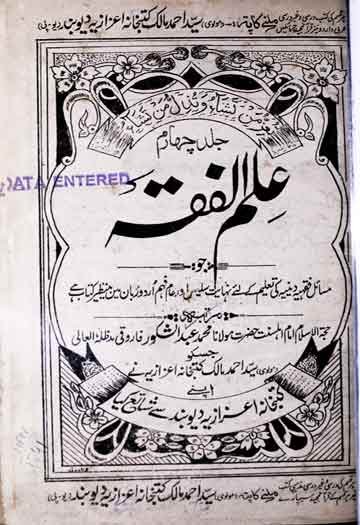 ملنے کا پتہ:- (مولوی) سید احمد مالک کتبخانہ اعزازیہ دیوبند (یو-پی)
تعز من تشاء وتذل من تشاء
جلد چہارم
DATA ENTERED
علم الفقہ
جو
مسائل فقہیہ دینیہ کی تعلیم کے لئے نہایت سلیس اور عام فہم اُردو زبان میں بینظیر کتاب ہے
مرتبہ
حجۃ الاسلام امام اہلسنت حضرت مولانا محمد عبدالشکور فاروقی مدظلہ العالی
جسکو
(مولوی) سید احمد مالک کتبخانہ اعزازیہ نے
اپنے
کتبخانہ اعزازیہ دیوبند سے شائع کیا
ملنے کا پتہ (مولوی) سید احمد مالک کتبخانہ اعزازیہ دیوبند (یو-پی)